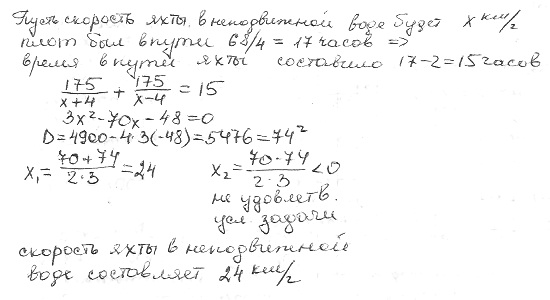 Пусть скорость яхты в неподвижной воде будет x км/ч
плот был в пути 68/4 = 17 часов =>
время в пути яхты составило 17-2=15 часов
175/(x+4) + 175/(x-4) = 15
3x²-70x-48=0
D=4900-4·3(-48)=5476=74²
x₁=(70+74)/(2·3)=24 x₂=(70-74)/(2·3)<0
не удовлетв.
усл задачи
скорость яхты в неподвижной
воде составляет 24 км/ч